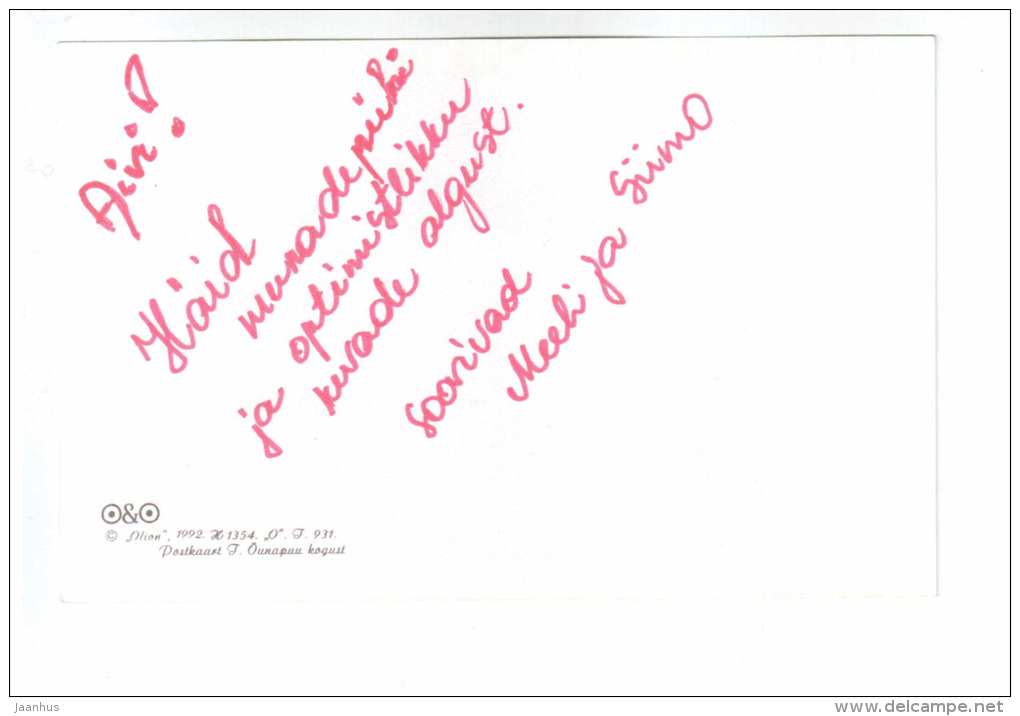 Aivi!
Häid
munadepühi
ja optimistlikku
kevade algust.
soovivad
Meeli ja Siimo
O&O
© „Olion", 1992. H 1354. „O". T. 931.
Postkaart T. Õunapuu kogust
Jaanhus
www.delcampe.net